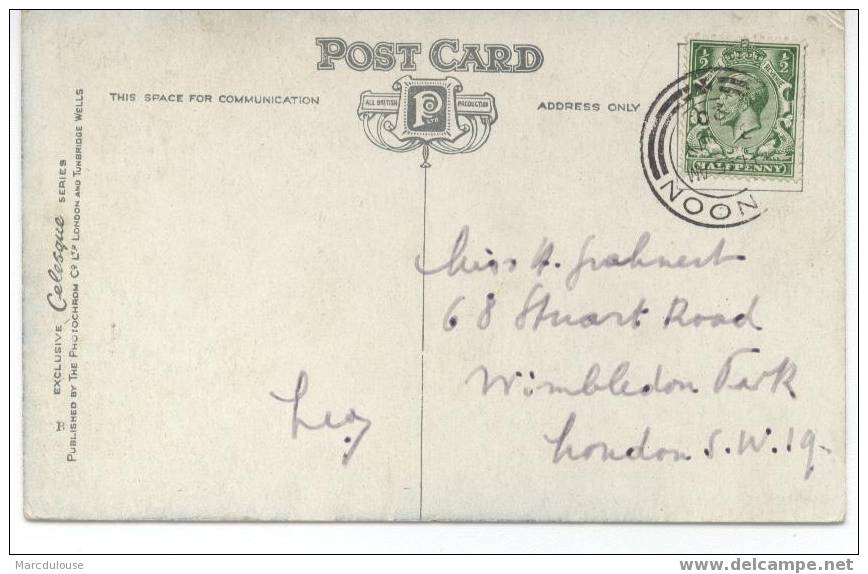 POST CARD
THIS SPACE FOR COMMUNICATION
ALL BRITISH PRODUCTION
P
ADDRESS ONLY
½ ½
HALFPENNY
NOON
EXCLUSIVE Celesque SERIES
PUBLISHED BY THE PHOTOCHROM Co. LTD. LONDON AND TUNBRIDGE WELLS
Miss H.
68 Stuart Road
Wimbledon Park
London S.W.19.
Marcdulouse
delcampe.net